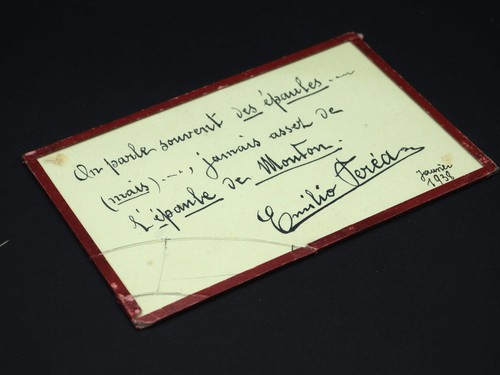 On parle souvent des épaules....
(mais)...., jamais assez de
l'épaule de Mouton.
Emilio Teréa
Janvier
1938